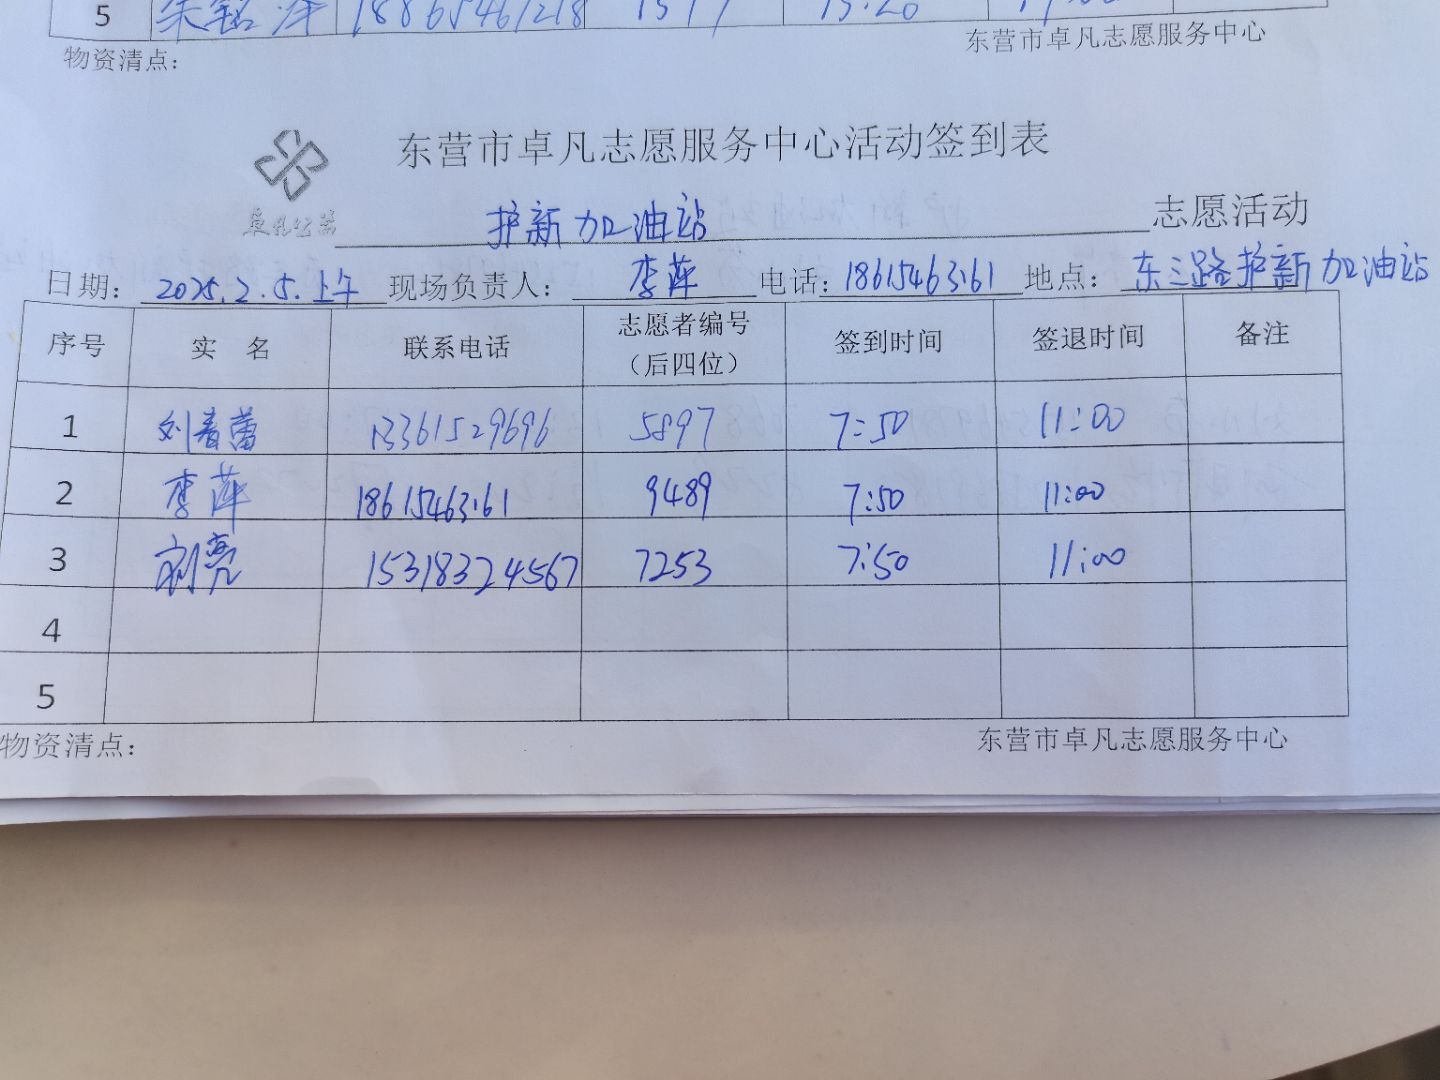 5 朱铭泽 18865461218
物资清点：
东营市卓凡志愿服务中心
东营市卓凡志愿服务中心活动签到表
卓凡公益
护新加油站 志愿活动
日期：2025.2.5.上午 现场负责人：李萍 电话：18615463161 地点：东三路护新加油站
序号 实 名 联系电话 志愿者编号（后四位） 签到时间 签退时间 备注
1 刘春蕾 13361529696 5897 7:50 11:00
2 李萍 18615463161 9489 7:50 11:00
3 刘亮 15318324567 7253 7:50 11:00
4
5
物资清点：
东营市卓凡志愿服务中心